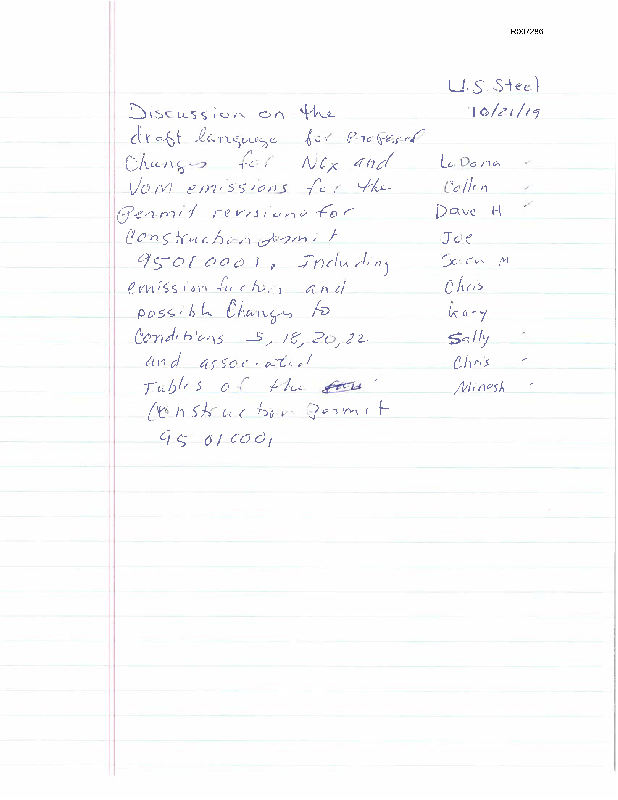 R007286
U.S. Steel
10/21/19
Discussion on the
draft language for Proposed
Changes for NOx and
VOM emissions for the
Permit revisions for
Construction permit
95010001, Including
emission factors and
possible Changes to
Conditions 5, 18, 20, 22
and associated
Tables of the
Construction Permit
95 010001
LaDona
Collin
Dave H
Joe
M
Chris
Kary
Sally
Chris
Minesh